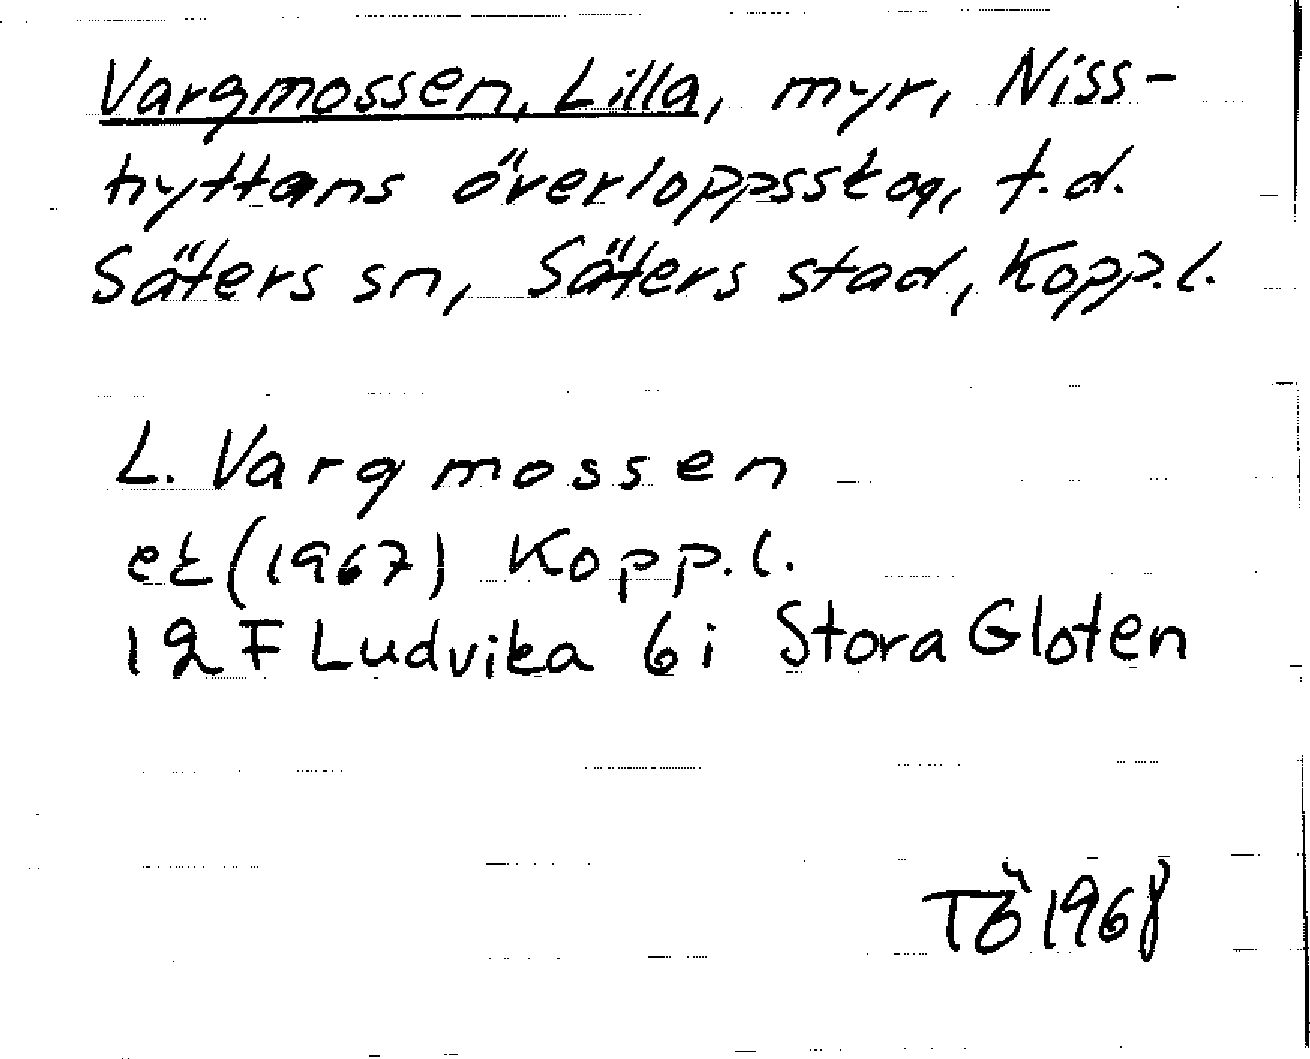 Vargmossen, Lilla, myr, Niss-
hyttans överloppsskog, f.d.
Säters sn, Säters stad, Kopp.l.
L. Vargmossen
ek (1967) Kopp.l.
12 F Ludvika 6 i Stora Gloten
TÖ 1968